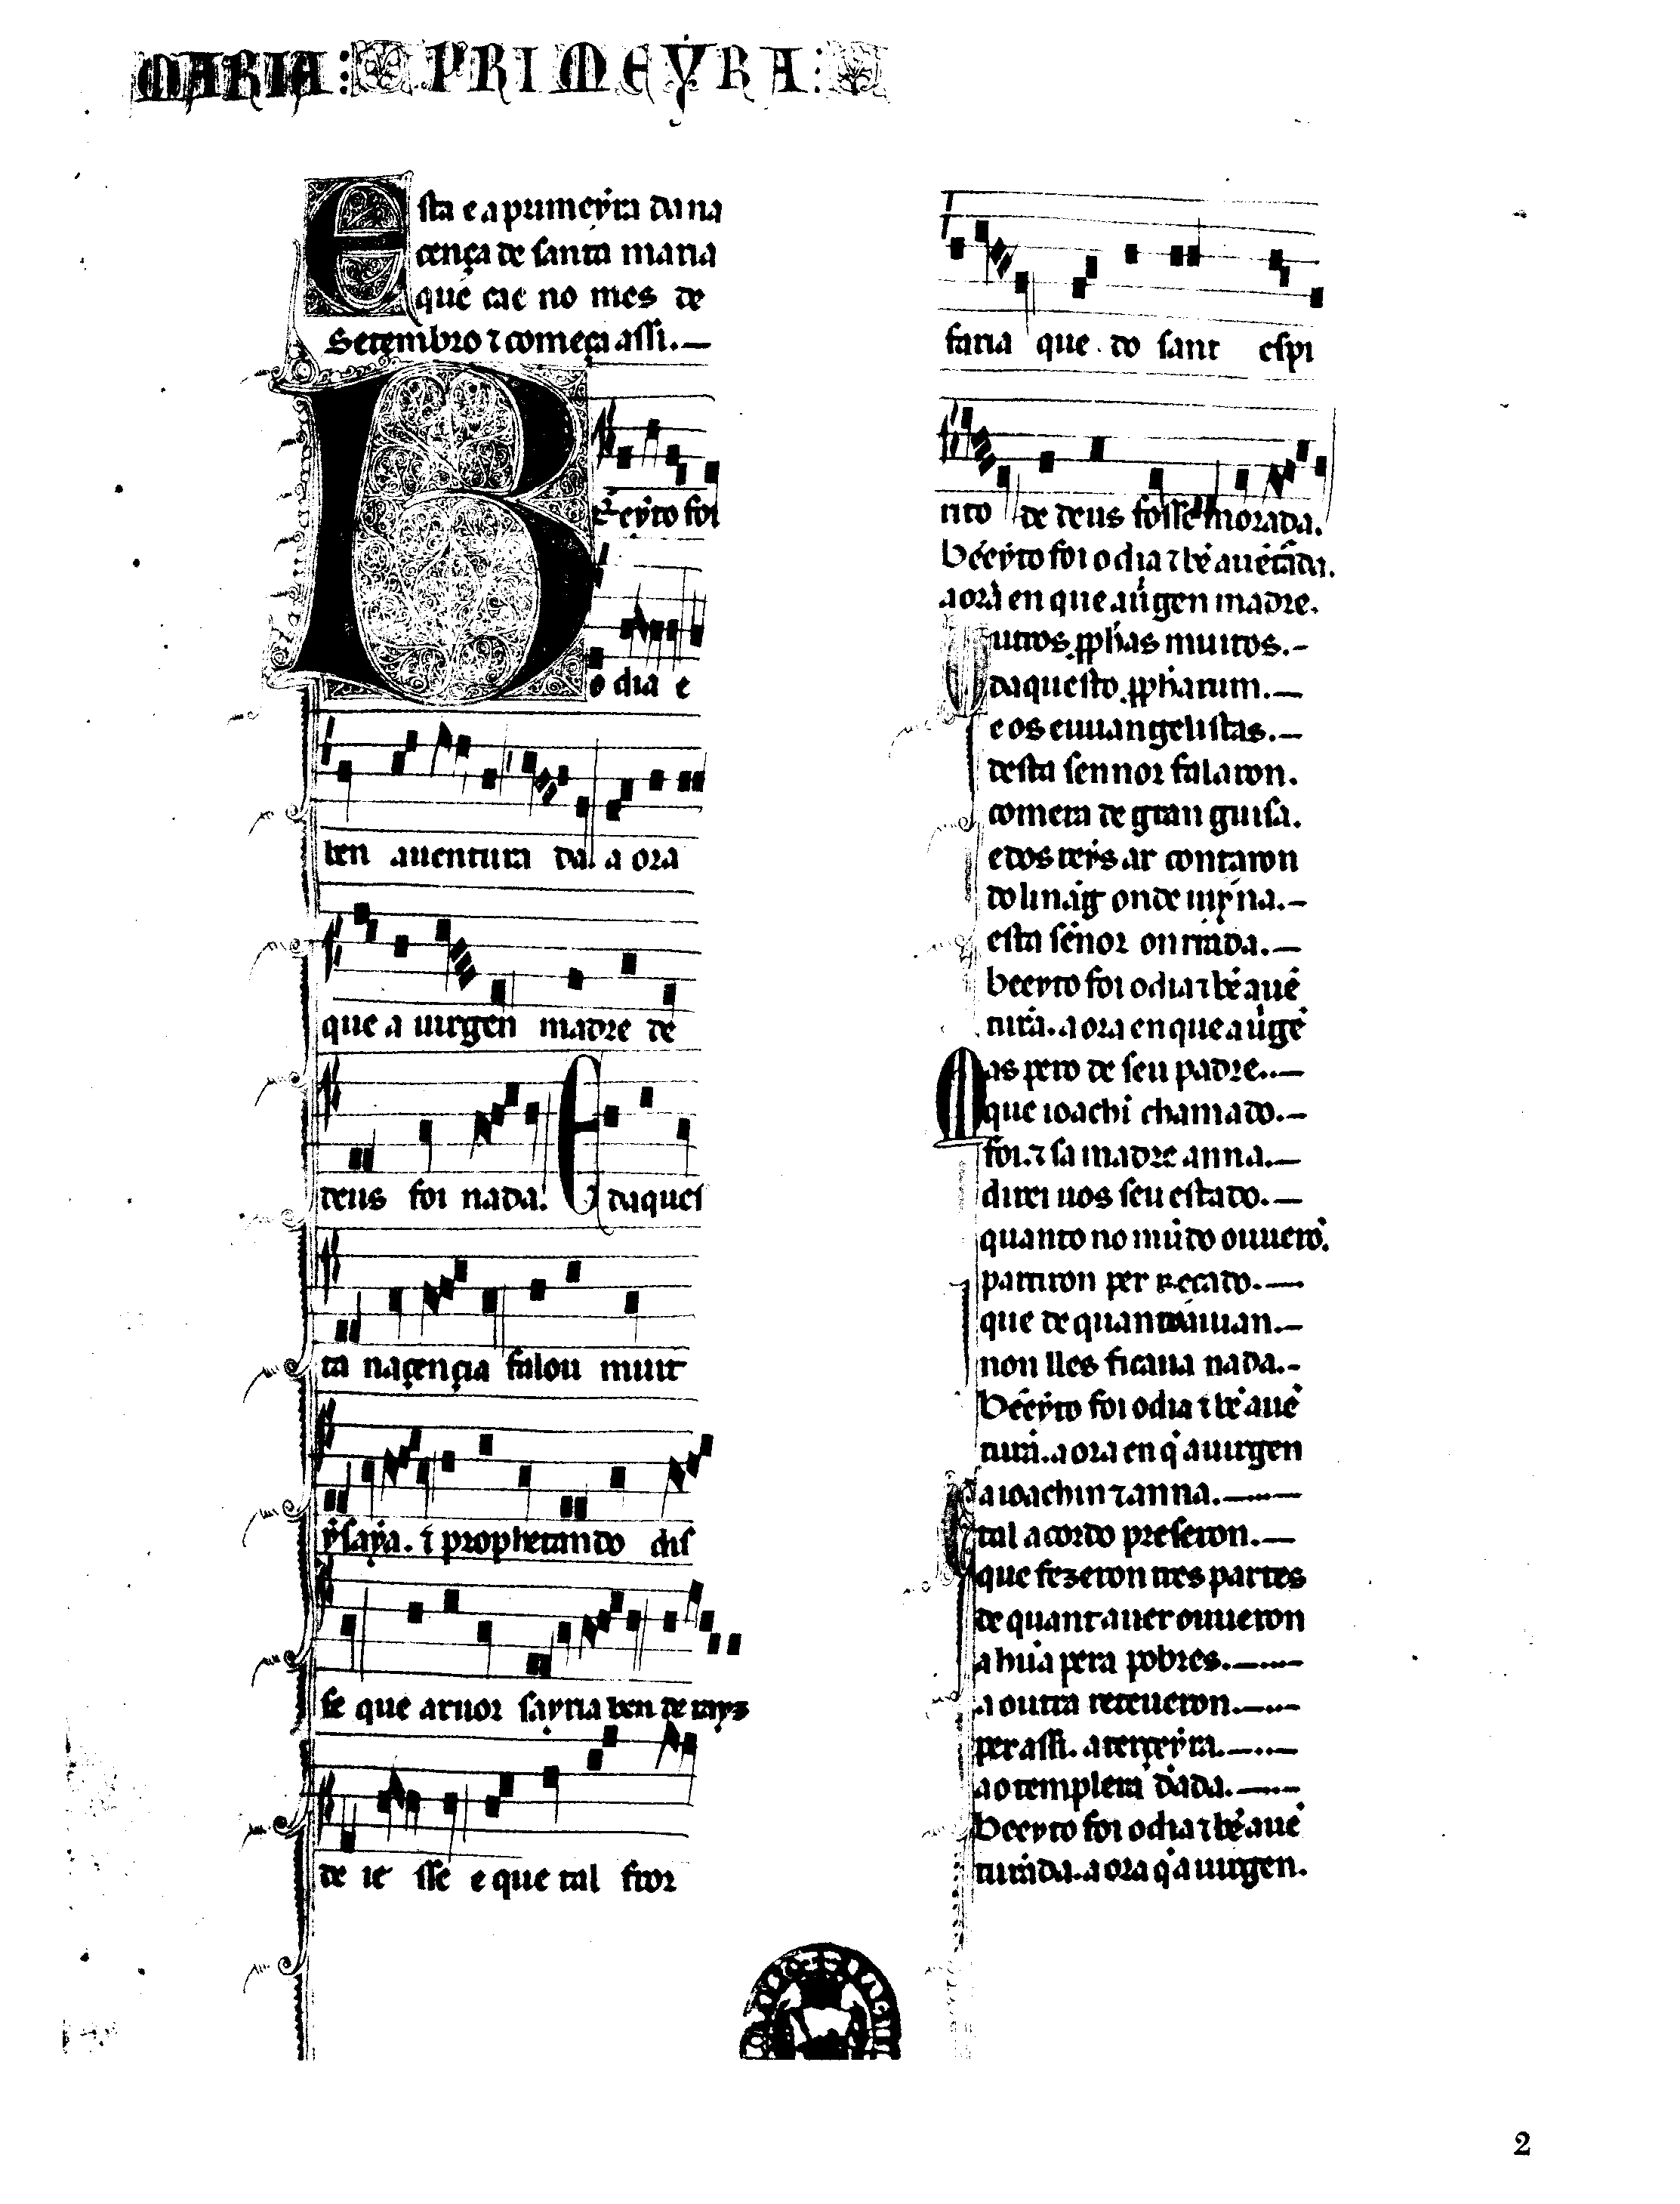 MARIA: PRIMEYRA:
Esta e a primeyra da na
cença de santa maria
que cae no mes de
Setembro ⁊ começa assi.—
Bẽeyto foi
o dia e
ben auentura da. a ora
que a uirgen madre de
deus foi nada. E daques
ta naçençia falou muit
ysaya. ⁊ prophetando dis
se que aruor sayria ben de rayz
de ie sse e que tal fror
faria que do sant espi
rito de deus fosse morada.
Bẽeyto foi o dia ⁊ bẽ auẽtada.
a ora en que a uirgen madre.
uitos pphas muitos.-
daquesto pphatum.—
e os euuangelistas.—
desta sennor falaron.
comera de gran guisa.
e dos reys ar contaron
do linag onde uiyna.-
esta señor onrrada.—
Beeyto foi o dia ⁊ bẽ auẽ
tura. a ora en que a uirgẽ
Mas pero de seu padre..—
que ioachĩ chamado.-
foi. ⁊ sa madre anna.—
direi uos seu estado.—
quanto no mũdo ouuerõ.
partiron per recado.—
que de quanto auian.—
non lles ficaua nada.-
Bẽeyto foi o dia ⁊ bẽ auẽ
tura. a ora en q a uirgen
a ioachin ⁊ anna.—
tal acordo preseron.—
que fezeron tres partes
de quant auer ouueron
a hũa pera pobres.—
a outra reteueron.—
per assi. a terçeyra.—
ao templera dada.—
Beeyto foi o dia ⁊ bẽ auẽ
turada. a ora q a uirgen.
2